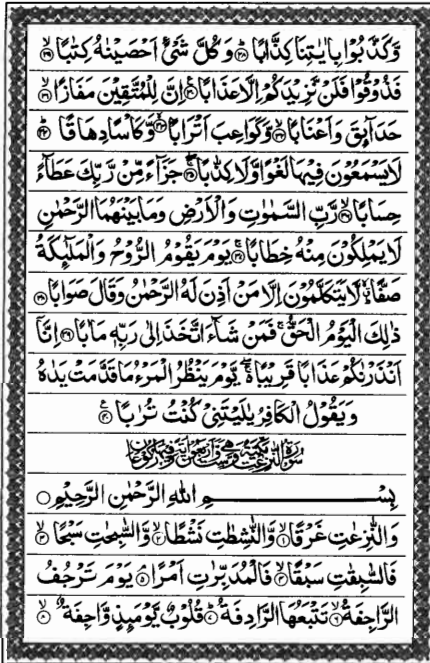 وَّكَذَّبُوْا بِاٰيٰتِنَا كِذَّابًا ﴿۲۸﴾ وَكُلَّ شَيْءٍ اَحْصَيْنٰهُ كِتٰبًا ﴿۲۹﴾
فَذُوْقُوْا فَلَنْ نَّزِيْدَكُمْ اِلَّا عَذَابًا ﴿۳۰﴾ اِنَّ لِلْمُتَّقِيْنَ مَفَازًا ﴿۳۱﴾
حَدَآئِقَ وَاَعْنَابًا ﴿۳۲﴾ وَّكَوَاعِبَ اَتْرَابًا ﴿۳۳﴾ وَّكَاْسًا دِهَاقًا ﴿۳۴﴾
لَا يَسْمَعُوْنَ فِيْهَا لَغْوًا وَّلَا كِذّٰبًا ﴿۳۵﴾ جَزَآءً مِّنْ رَّبِّكَ عَطَآءً
حِسَابًا ﴿۳۶﴾ رَّبِّ السَّمٰوٰتِ وَالْاَرْضِ وَمَا بَيْنَهُمَا الرَّحْمٰنِ
لَا يَمْلِكُوْنَ مِنْهُ خِطَابًا ﴿۳۷﴾ يَوْمَ يَقُوْمُ الرُّوْحُ وَالْمَلٰٓئِكَةُ
صَفًّا لَّا يَتَكَلَّمُوْنَ اِلَّا مَنْ اَذِنَ لَهُ الرَّحْمٰنُ وَقَالَ صَوَابًا ﴿۳۸﴾
ذٰلِكَ الْيَوْمُ الْحَقُّ فَمَنْ شَآءَ اتَّخَذَ اِلٰى رَبِّهٖ مَاٰبًا ﴿۳۹﴾ اِنَّآ
اَنْذَرْنٰكُمْ عَذَابًا قَرِيْبًا يَّوْمَ يَنْظُرُ الْمَرْءُ مَا قَدَّمَتْ يَدٰهُ
وَيَقُوْلُ الْكٰفِرُ يٰلَيْتَنِيْ كُنْتُ تُرٰبًا ﴿۴۰﴾
بِسْمِ اللهِ الرَّحْمٰنِ الرَّحِيْمِ
وَالنّٰزِعٰتِ غَرْقًا ﴿۱﴾ وَّالنّٰشِطٰتِ نَشْطًا ﴿۲﴾ وَّالسّٰبِحٰتِ سَبْحًا ﴿۳﴾
فَالسّٰبِقٰتِ سَبْقًا ﴿۴﴾ فَالْمُدَبِّرٰتِ اَمْرًا ﴿۵﴾ يَوْمَ تَرْجُفُ
الرَّاجِفَةُ ﴿۶﴾ تَتْبَعُهَا الرَّادِفَةُ ﴿۷﴾ قُلُوْبٌ يَّوْمَئِذٍ وَّاجِفَةٌ ﴿۸﴾